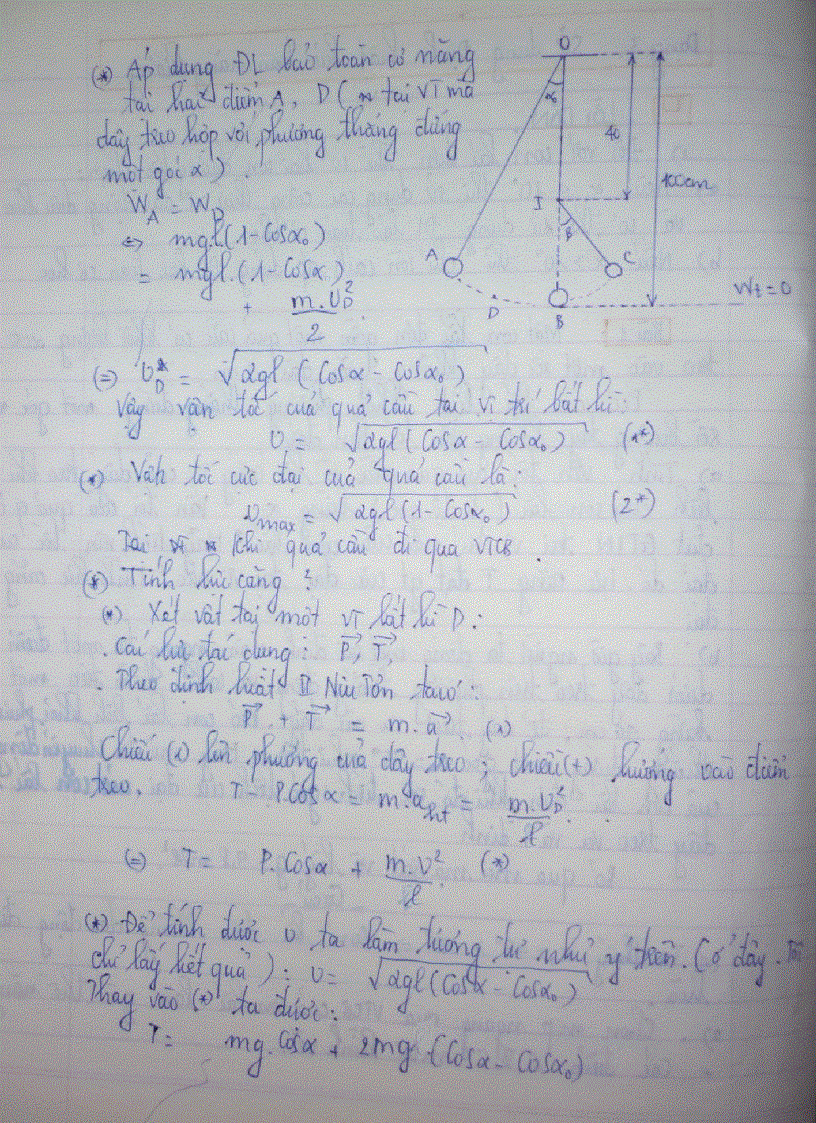 (*) Áp dụng ĐL bảo toàn cơ năng
tại hai điểm A, D ( tại VT mà
dây treo hợp với phương thẳng đứng
một góc α ) .
W_A = W_D
⇔ mgl(1-Cosα₀)
= mgl.(1-Cosα)
+ m.υ_D²/2
(=) υ_D = √2gl(Cosα - Cosα₀)
Vậy vận tốc của quả cầu tại vị trí bất kì:
υ = √2gl(Cosα - Cosα₀) (1*)
(*) Vận tốc cực đại của quả cầu là:
υmax = √2gl(1-Cosα₀) (2*)
Tại khi quả cầu đi qua VTCB .
(*) Tính lực căng :
(*) Xét vật tại một VT bất kì D :
. Các lực tác dụng : P⃗, T⃗,
. Theo định luật II Niu Tơn ta có :
P⃗ + T⃗ = m.a⃗ (1)
Chiếu (1) lên phương của dây treo ; chiều(+) hướng vào điểm
treo. T - P.Cosα = m.a_ht = m.υ_D²/l .
(=) T = P.Cosα + m.V²/l (*)
(*) Để tính được υ ta làm tương tự như ý trên. (ở đây
chỉ lấy kết quả ) : υ = √2gl(Cosα - Cosα₀)
Thay vào (*) ta được :
T = mg.Cosα + 2mg.(Cosα - Cosα₀)
O
α₀
40
100cm
I
β
A
C
D
B
Wt = 0